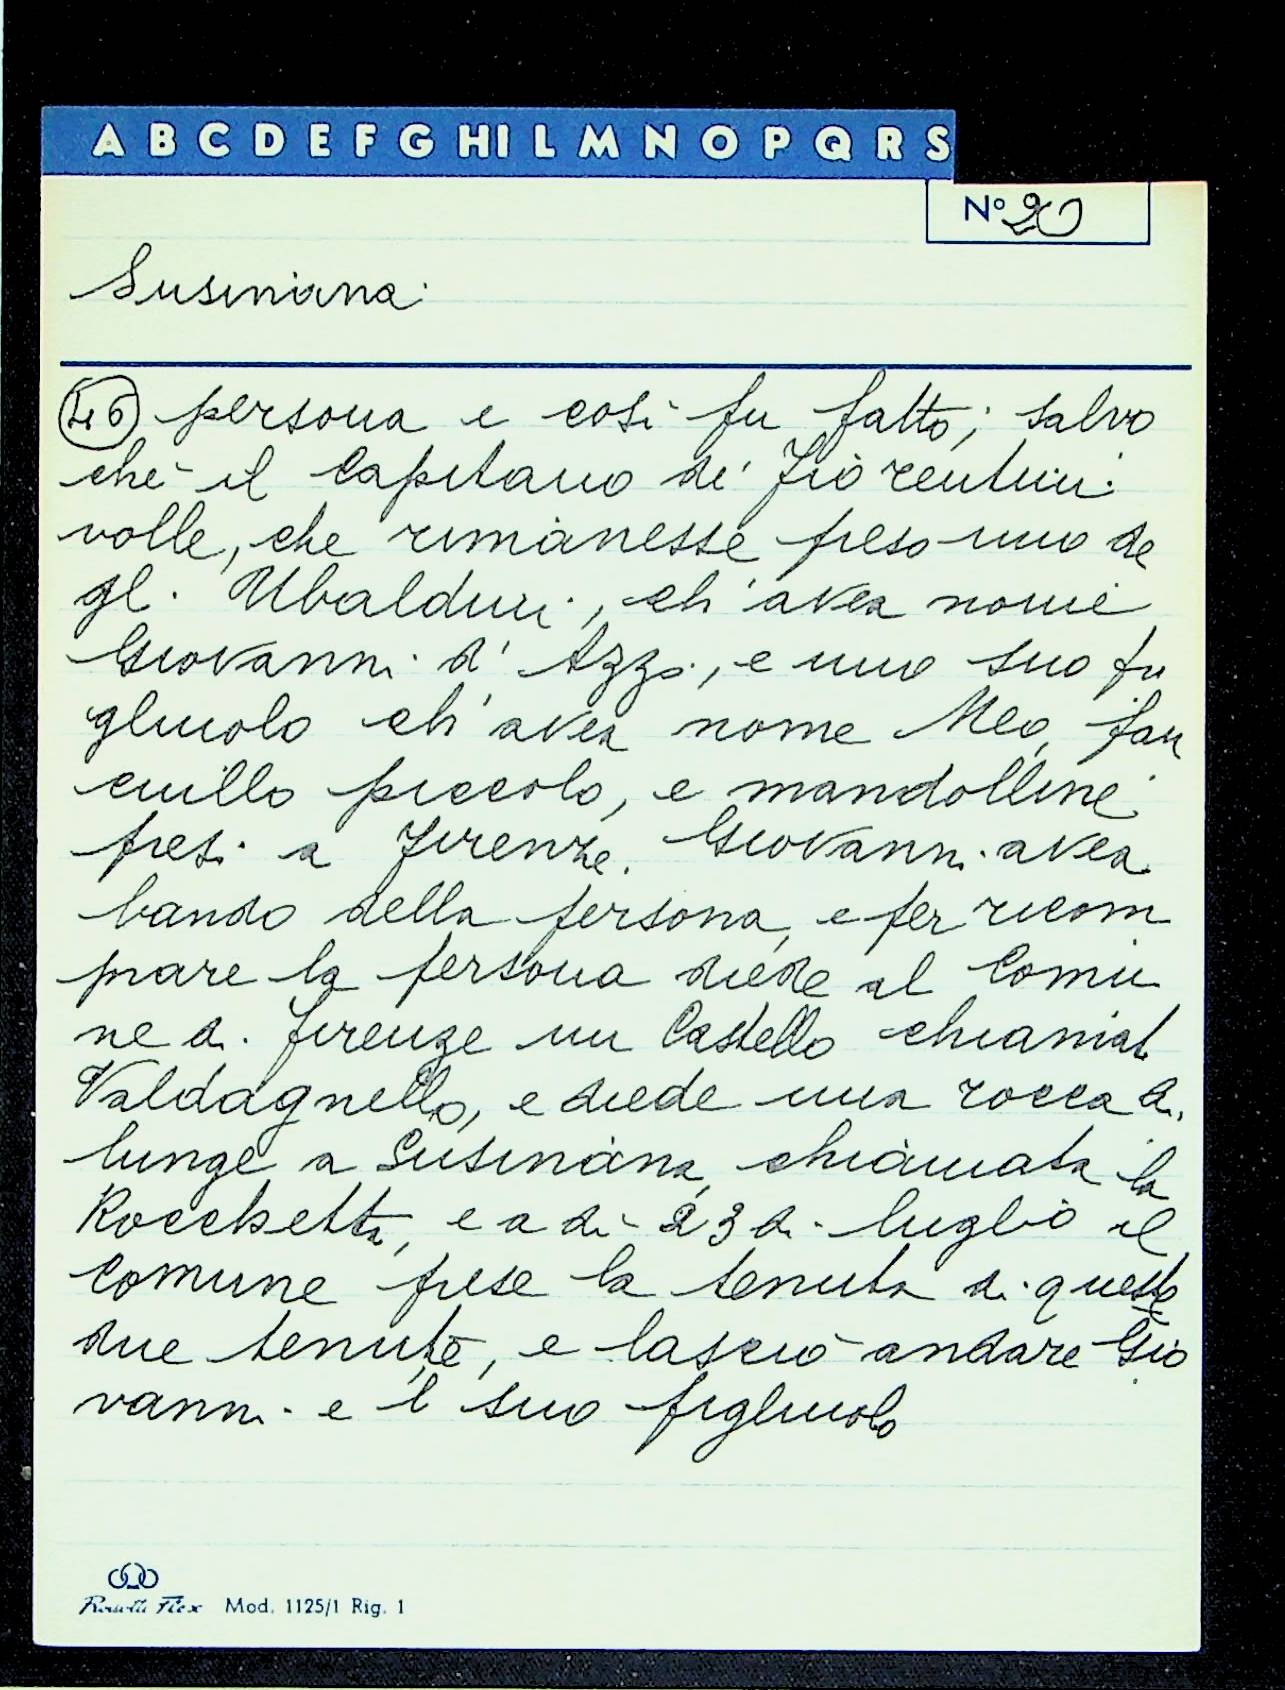 A B C D E F G H I L M N O P Q R S
N° 20
Susinana
46 persona e così fu fatto; salvo
che il Capitano de' Fiorentini
volle, che rimanesse preso uno de
gli Ubaldini, ch'avea nome
Giovanni d'Azzo, e uno suo fi
gliuolo ch'avea nome Meo, fan
ciullo piccolo, e mandolline
presi a Firenze. Giovanni avea
bando della persona, e per ricom
prare la persona diede al Comu
ne di Firenze un Castello chiamat
Valdagnello, e diede una rocca di
lunge a Susinana, chiamata la
Rocchetta, e a dì 23 di luglio il
Comune prese la tenuta di queste
due tenute, e lasciò andare Gio
vanni e 'l suo figliuolo
Flex Mod. 1125/1 Rig. 1